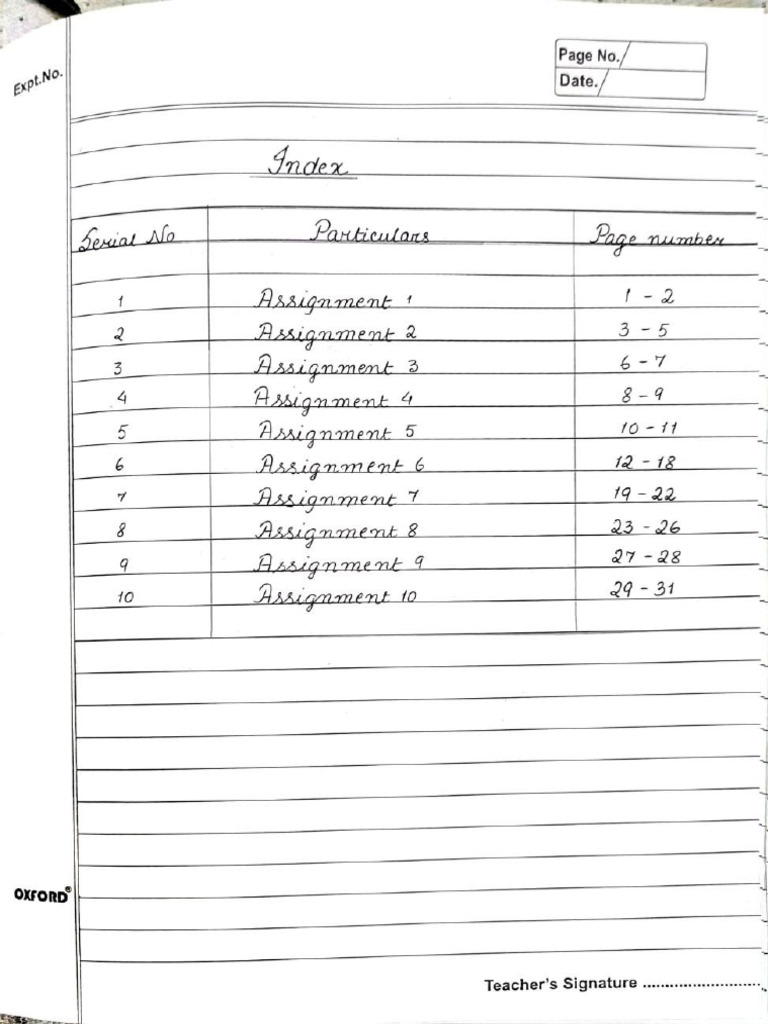 Expt.No.
Page No.
Date.
Index
Serial No Particulars Page number
1 Assignment 1 1 - 2
2 Assignment 2 3 - 5
3 Assignment 3 6 - 7
4 Assignment 4 8 - 9
5 Assignment 5 10 - 11
6 Assignment 6 12 - 18
7 Assignment 7 19 - 22
8 Assignment 8 23 - 26
9 Assignment 9 27 - 28
10 Assignment 10 29 - 31
OXFORD®
Teacher's Signature ..........................